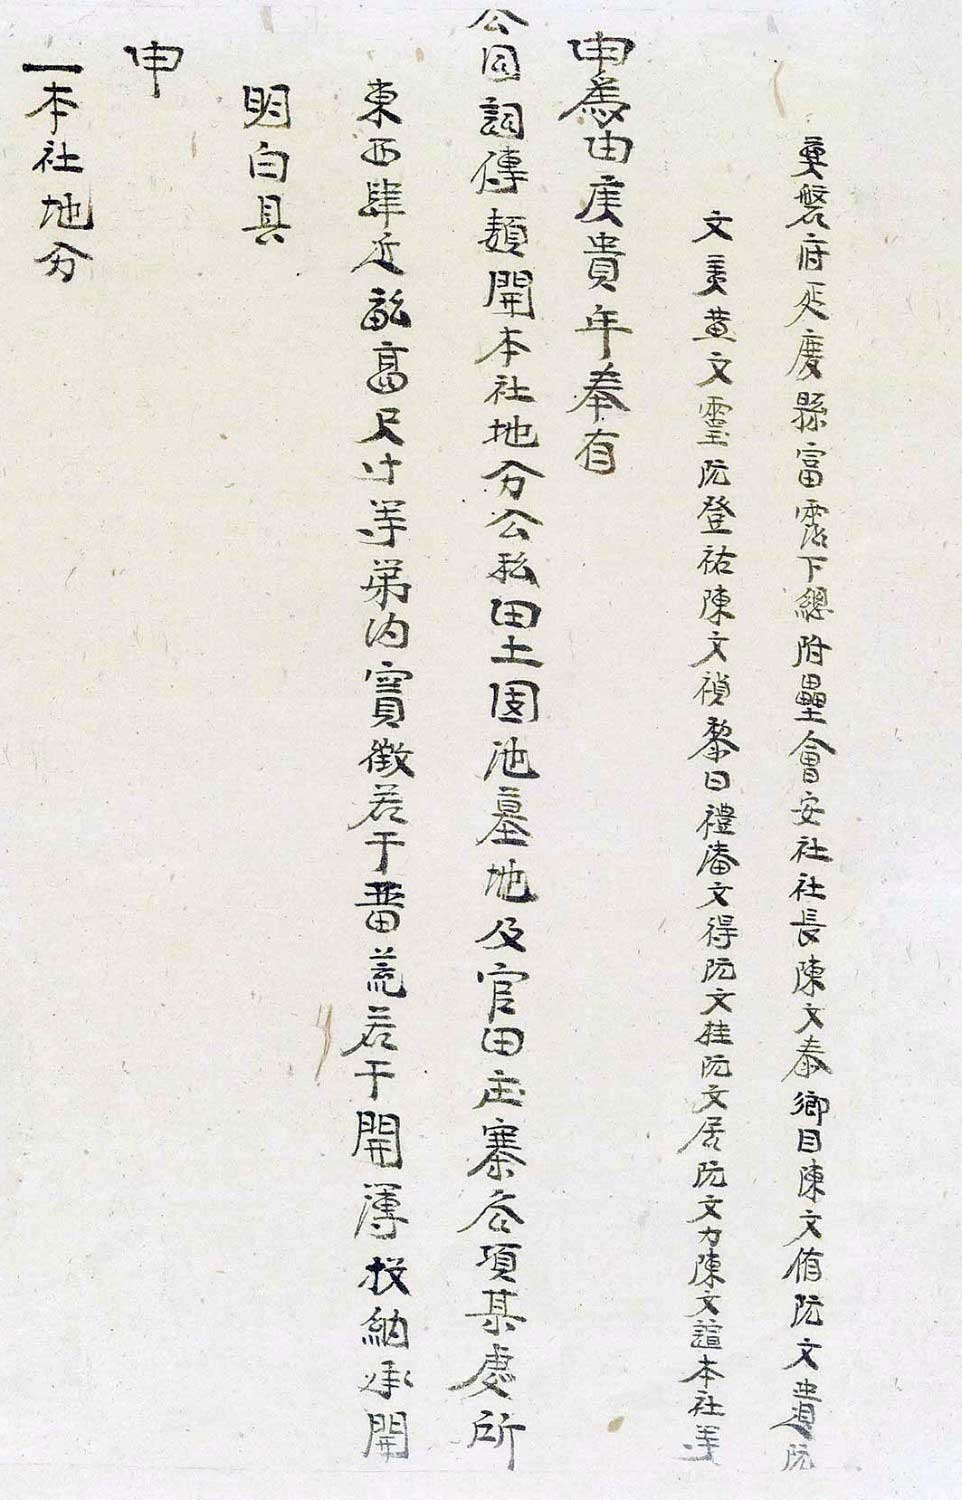 奠磐府延慶縣富霑下總附壘會安社社長陳文泰鄉目陳文侑阮文遺阮
文美黃文靈阮登祐陳文禎黎曰禮潘文得阮文桂阮文居阮文力陳文誼本社等
申爲由庚貴年奉有
公同詞傳類開本社地分公私田土園池墓地及官田庄寨各項某處所
東西肆近畝高尺寸等第內實徵若干畱荒若干開簿投納承開
明白具
申
一本社地分